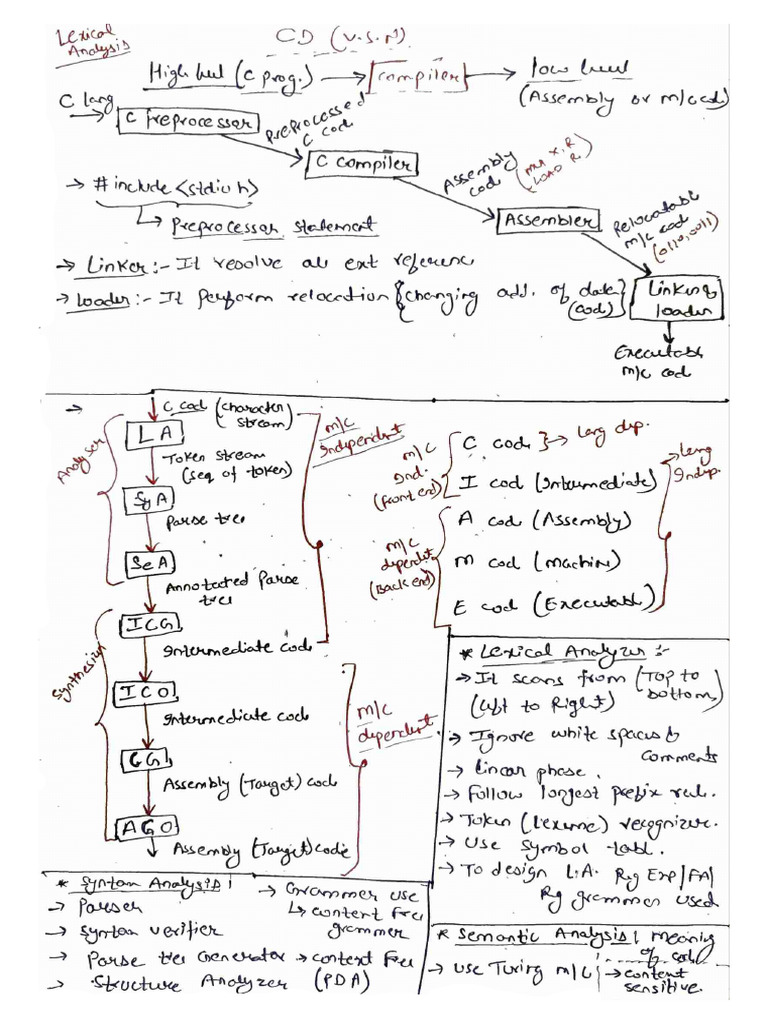 Lexical
Analysis
CD (V.S.N)
High level (C prog.) → compiler → low level
(Assembly or m/c code)
C lang
C preprocessor
preprocessed
C cod
C compiler
Assembly
cod
LOAD R
→ #include <stdio h>
preprocessor statement
Assembler
Relocatable
m/c cod
(0110,0011)
→ Linker :- It resolve all ext reference
→ Loader :- It perform relocation {changing add. of data}
(cod)
Linker &
loader
Executable
m/c cod
→ C cod (character
stream)
LA
Token stream
(seq of token)
SyA
Parse tree
SeA
Annotated parse
tree
ICG
Intermediate code
ICO
Intermediate code
CG
Assembly (Target) cod
AGO
Assembly (Target) code
Analyser
Synthesizer
m/c
Independent
m/c
dependent
C cod } → lang dep.
I cod (Intermediate)
A cod (Assembly)
m cod (machine)
E cod (Executable)
m/c
Ind.
(front end)
m/c
dependent
(Back end)
Lang
Indep.
* Lexical Analyzer :-
→ It scans from (Top to
bottom,
(left to Right)
→ Ignore white spaces &
comments
→ Linear phase.
→ Follow longest prefix rule.
→ Token (lexeme) recognizer.
→ Use symbol table.
→ To design L.A. Rg Exp/FA/
Rg grammer used
* Syntax Analysis :
→ Parser
→ Syntax verifier
→ Parse tree Generator → context free
→ Structure Analyzer (PDA)
→ Grammer use
↳ context free
grammer
* Semantic Analysis : meaning
of code
→ use Turing m/c
→ context
sensitive.